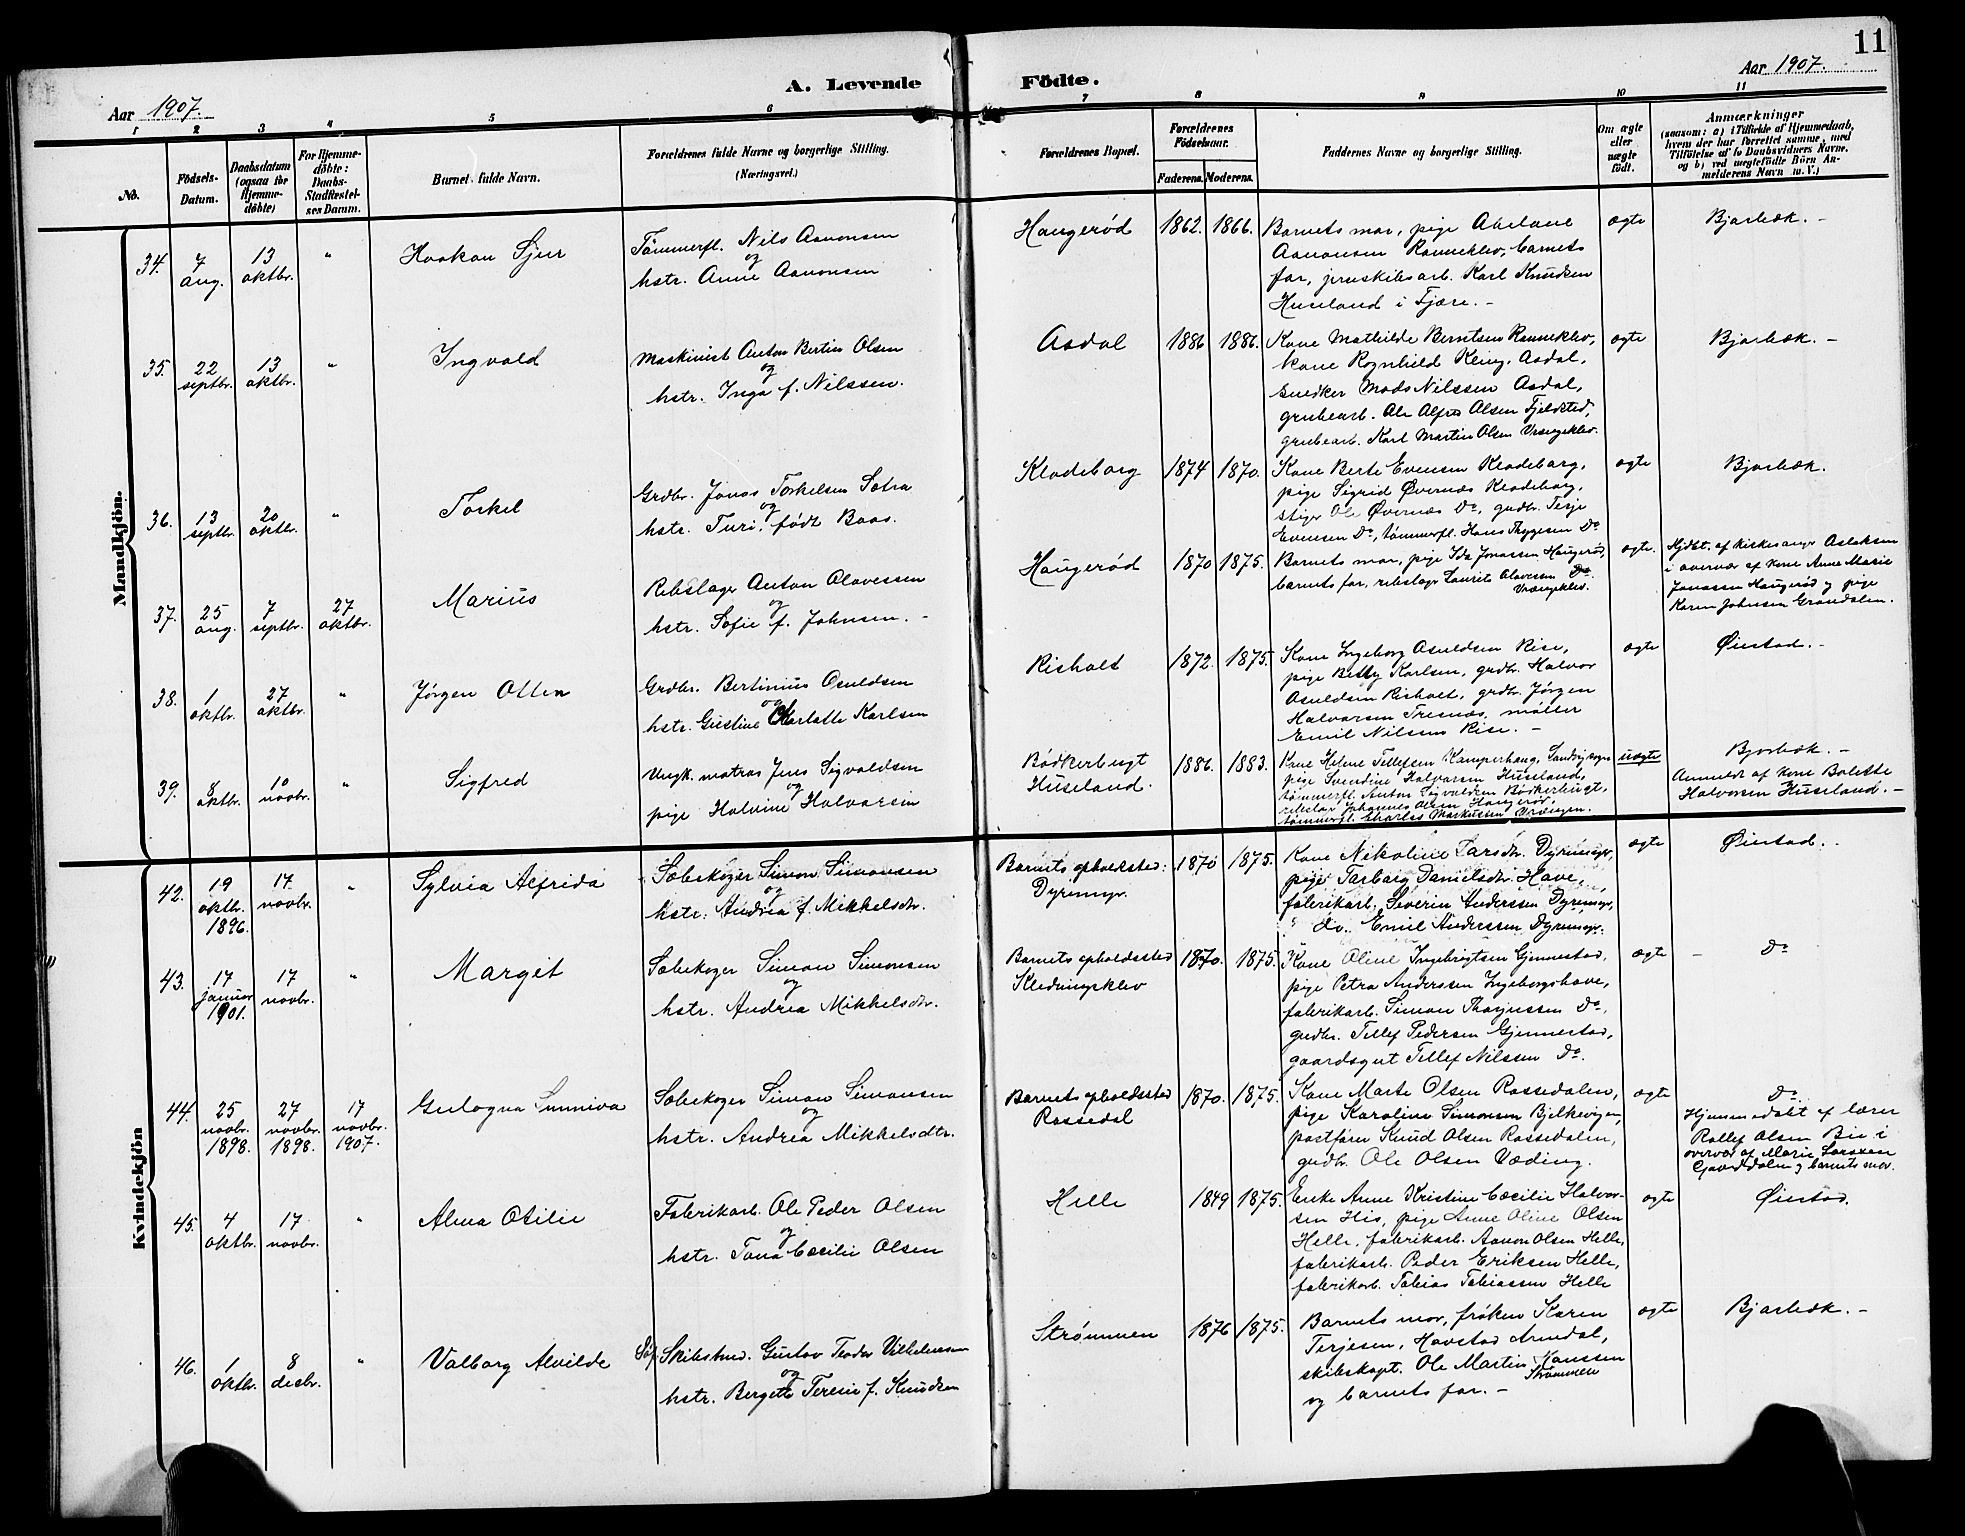 11
Aar 1907.
A. Levende
Födte.
Aar 1907.
1 2 3 4 5 6 7 8 9 10 11
No.
Fødsels-
Datum.
Daabsdatum
(ogsaa for
Hjemme-
døbte)
For Hjemme-
døbte:
Daabs-
Stadfæstel-
ses Datum.
Barnets fulde Navn.
Forældrenes fulde Navne og borgerlige Stilling.
(Næringsvei.)
Forældrenes Bopæl.
Forældrenes
Födselsaar.
Faderens. Moderens.
Faddernes Navne og borgerlige Stilling.
Om ægte
eller
uægte
født.
Anmærkninger
(saasom: a) i Tilfælde af Hjemmedaab,
hvem der har forrettet samme, med
Tilføielse af to Daabsvidners Navne,
og b) ved uægtefödte Börn An-
melderens Navn m. V.)
Mandkjön.
34.
7
aug.
13
oktbr.
"
Haakon Sjur
Tømmerfl. Nils Aanonsen
og
hstr. Anne Aanonsen
Haugerød
1862. 1866.
Barnets mor, pige Abelone
Aanonsen Ranneklev, barnets
far, jernskibsarb. Karl Knudsen
Huseland i Fjære. -
ægte
Bjorbæk. -
35.
22
septbr.
13
oktbr.
"
Ingvald
Maskinist Anton Bertin Olsen
og
hstr. Inga f. Nilssen.
Asdal
1886 1886.
Kone Mathilde Berntsen Ranneklev,
kone Ragnhild Kling, Asdal,
snedker Mads Nilssen Asdal,
grubearb. Ole Alfred Olsen Fjeldsted,
grubearb. Karl Martin Olsen Vrængeklev.
ægte
Bjorbæk. -
36.
13
septbr.
20
oktbr.
"
Torkel
Grdbr. Jonas Torkelsen Sætra
og
hstr. Turi, født Baas.
Klodeborg
1874 1870.
Kone Berte Evensen Klodeborg,
pige Sigrid Øvernæs Klodeborg,
stiger Ole Øvernæs Do, grdbr. Terje
Evensen Do, tømmerfl. Hans Thygesen Do
ægte
Bjorbæk.
37.
25
aug.
7
septbr.
27
oktbr.
Marius
Rebslager Anton Olavessen
og
hstr. Sofie f. Johnsen. -
Haugerød
1870 1875.
Barnets mor, pige Ida Jonassen Haugerød,
barnets far, rebslager Laurits Olavessen Do.
Vrængeklev.
ægte.
Hjdbt. af kirkesanger Aslaksen
i overvær af kone Anne Marie
Jonassen Haugerød og pige
Karen Johnsen Grandalen.
38.
1
oktbr.
27
oktbr.
"
Jørgen Otten
Grdbr. Bertinius Osuldsen
og
hstr. Gustine Charlotte Karlsen
Risholt
1872. 1875.
Kone Ingeborg Osuldsen Rise,
pige Betty Karlsen, grdbr. Halvor
Osuldsen Risholt, grdbr. Jørgen
Halvorsen Tresnæs, møller
Emil Nilssen Rise. -
ægte
Øiestad. -
39.
8
oktbr.
10
novbr.
"
Sigfred
Ungk. matros Jens Sigvaldsen
og
pige Halvine Halvorsen
Bødkerbugt
Huseland.
1886. 1883.
Kone Helene Tellefsen Kamperhaug,
pige Svendine Halvorsen Huseland,
tømmerfl. Anton Sigvaldsen Bødkerbugt,
rebslager Johannes Olsen Haugerød,
tømmerfl. Charles Markussen Vrængen.
uægte
Bjorbæk. -
Anmeldt af kone Bolette
Halvorsen Huseland. -
Kvindekjön
42.
19
oktbr.
1896.
17
novbr.
"
Sylvia Alfrida
Sæbekoger Simon Simonsen
og
hstr. Andrea f. Mikkelsdtr.
Barnets opholdssted:
Dyremyr.
1870 1875.
Kone Nikoline Larsdtr. Dyremyr,
pige Tarbarg Danielsdtr. Haven,
fabrikarb. Severin Anderssen Dyremyr,
" do. Emil Anderssen Dyremyr.
ægte
Øiestad. -
43.
17
januar
1901.
17
novbr.
"
Margit
Sæbekoger Simon Simonsen
og
hstr. Andrea Mikkelsdtr.
Barnets opholdssted
Kledningeklev
1870. 1875.
Kone Oline Ingebrigtsen Gjennestad,
pige Petra Anderssen Ingeborgshave,
fabrikarb. Simon Thorjussen Do,
grdbr. Tellef Pedersen Gjennestad,
gaardsgut Tellef Nilssen Do.
ægte
- Do
44.
25
novbr.
1898.
27
novbr.
1898.
17
novbr.
1907.
Gulogna Sunniva
Sæbekoger Simon Simonsen
og
hstr. Andrea Mikkelsdtr.
Barnets opholdssted
Rossedal
1870. 1875.
Kone Marte Olsen Rossedalen,
pige Karoline Simonsen Bjelkevigen,
postfører Knud Olsen Rossedalen,
grdbr. Ole Olsen Væding.
ægte
Do
Hjemmedøbt af lærer
Rollef Olsen Bie i
overvær af Marie Larssen
Gaarddalen og barnets mor.
45.
4
oktbr.
17
novbr.
"
Alma Otilie
Fabrikarb. Ole Peder Olsen
og
hstr. Tona Cæcilie Olsen
Helle
1849 1875.
Enke Anne Kristine Cæcilie Halvor-
sen His, pige Anne Oline Olsen
Helle, fabrikarb. Aanon Olsen Helle,
fabrikarb. Peder Eriksen Helle,
fabrikarb. Tobias Tobiassen Helle
ægte
Øiestad.
46.
1
oktbr.
8
decbr.
"
Valborg Alvilde
Skibstmd. Gustav Teodor Vilhelmsen
og
hstr. Bergette Teresie f. Knudsen
Strømmen
1876 1875.
Barnets mor, frøken Karen
Terjesen, Havstad Arendal,
skibskapt. Ole Martin Hanssen
Strømmen
og barnets far. -
ægte
Bjorbæk. -